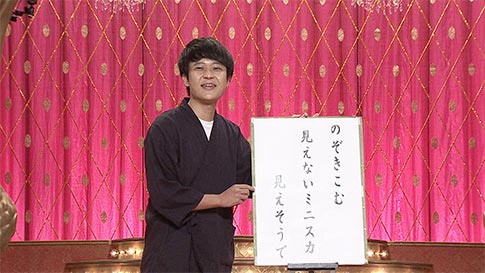 のぞきこむ
見えないミニスカ
見えそうで